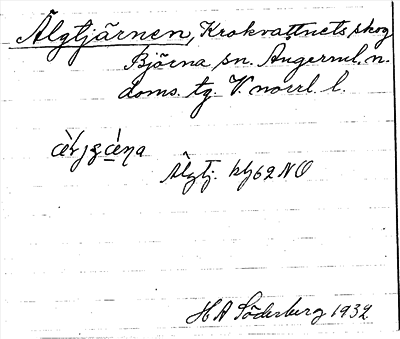 Älgtjärnen, Krokvattnets skog
Björna sn. Ångerml. n.
doms. tg. V. norrl. l.
Älgtj. bl 62 NO
H A Söderberg 1932